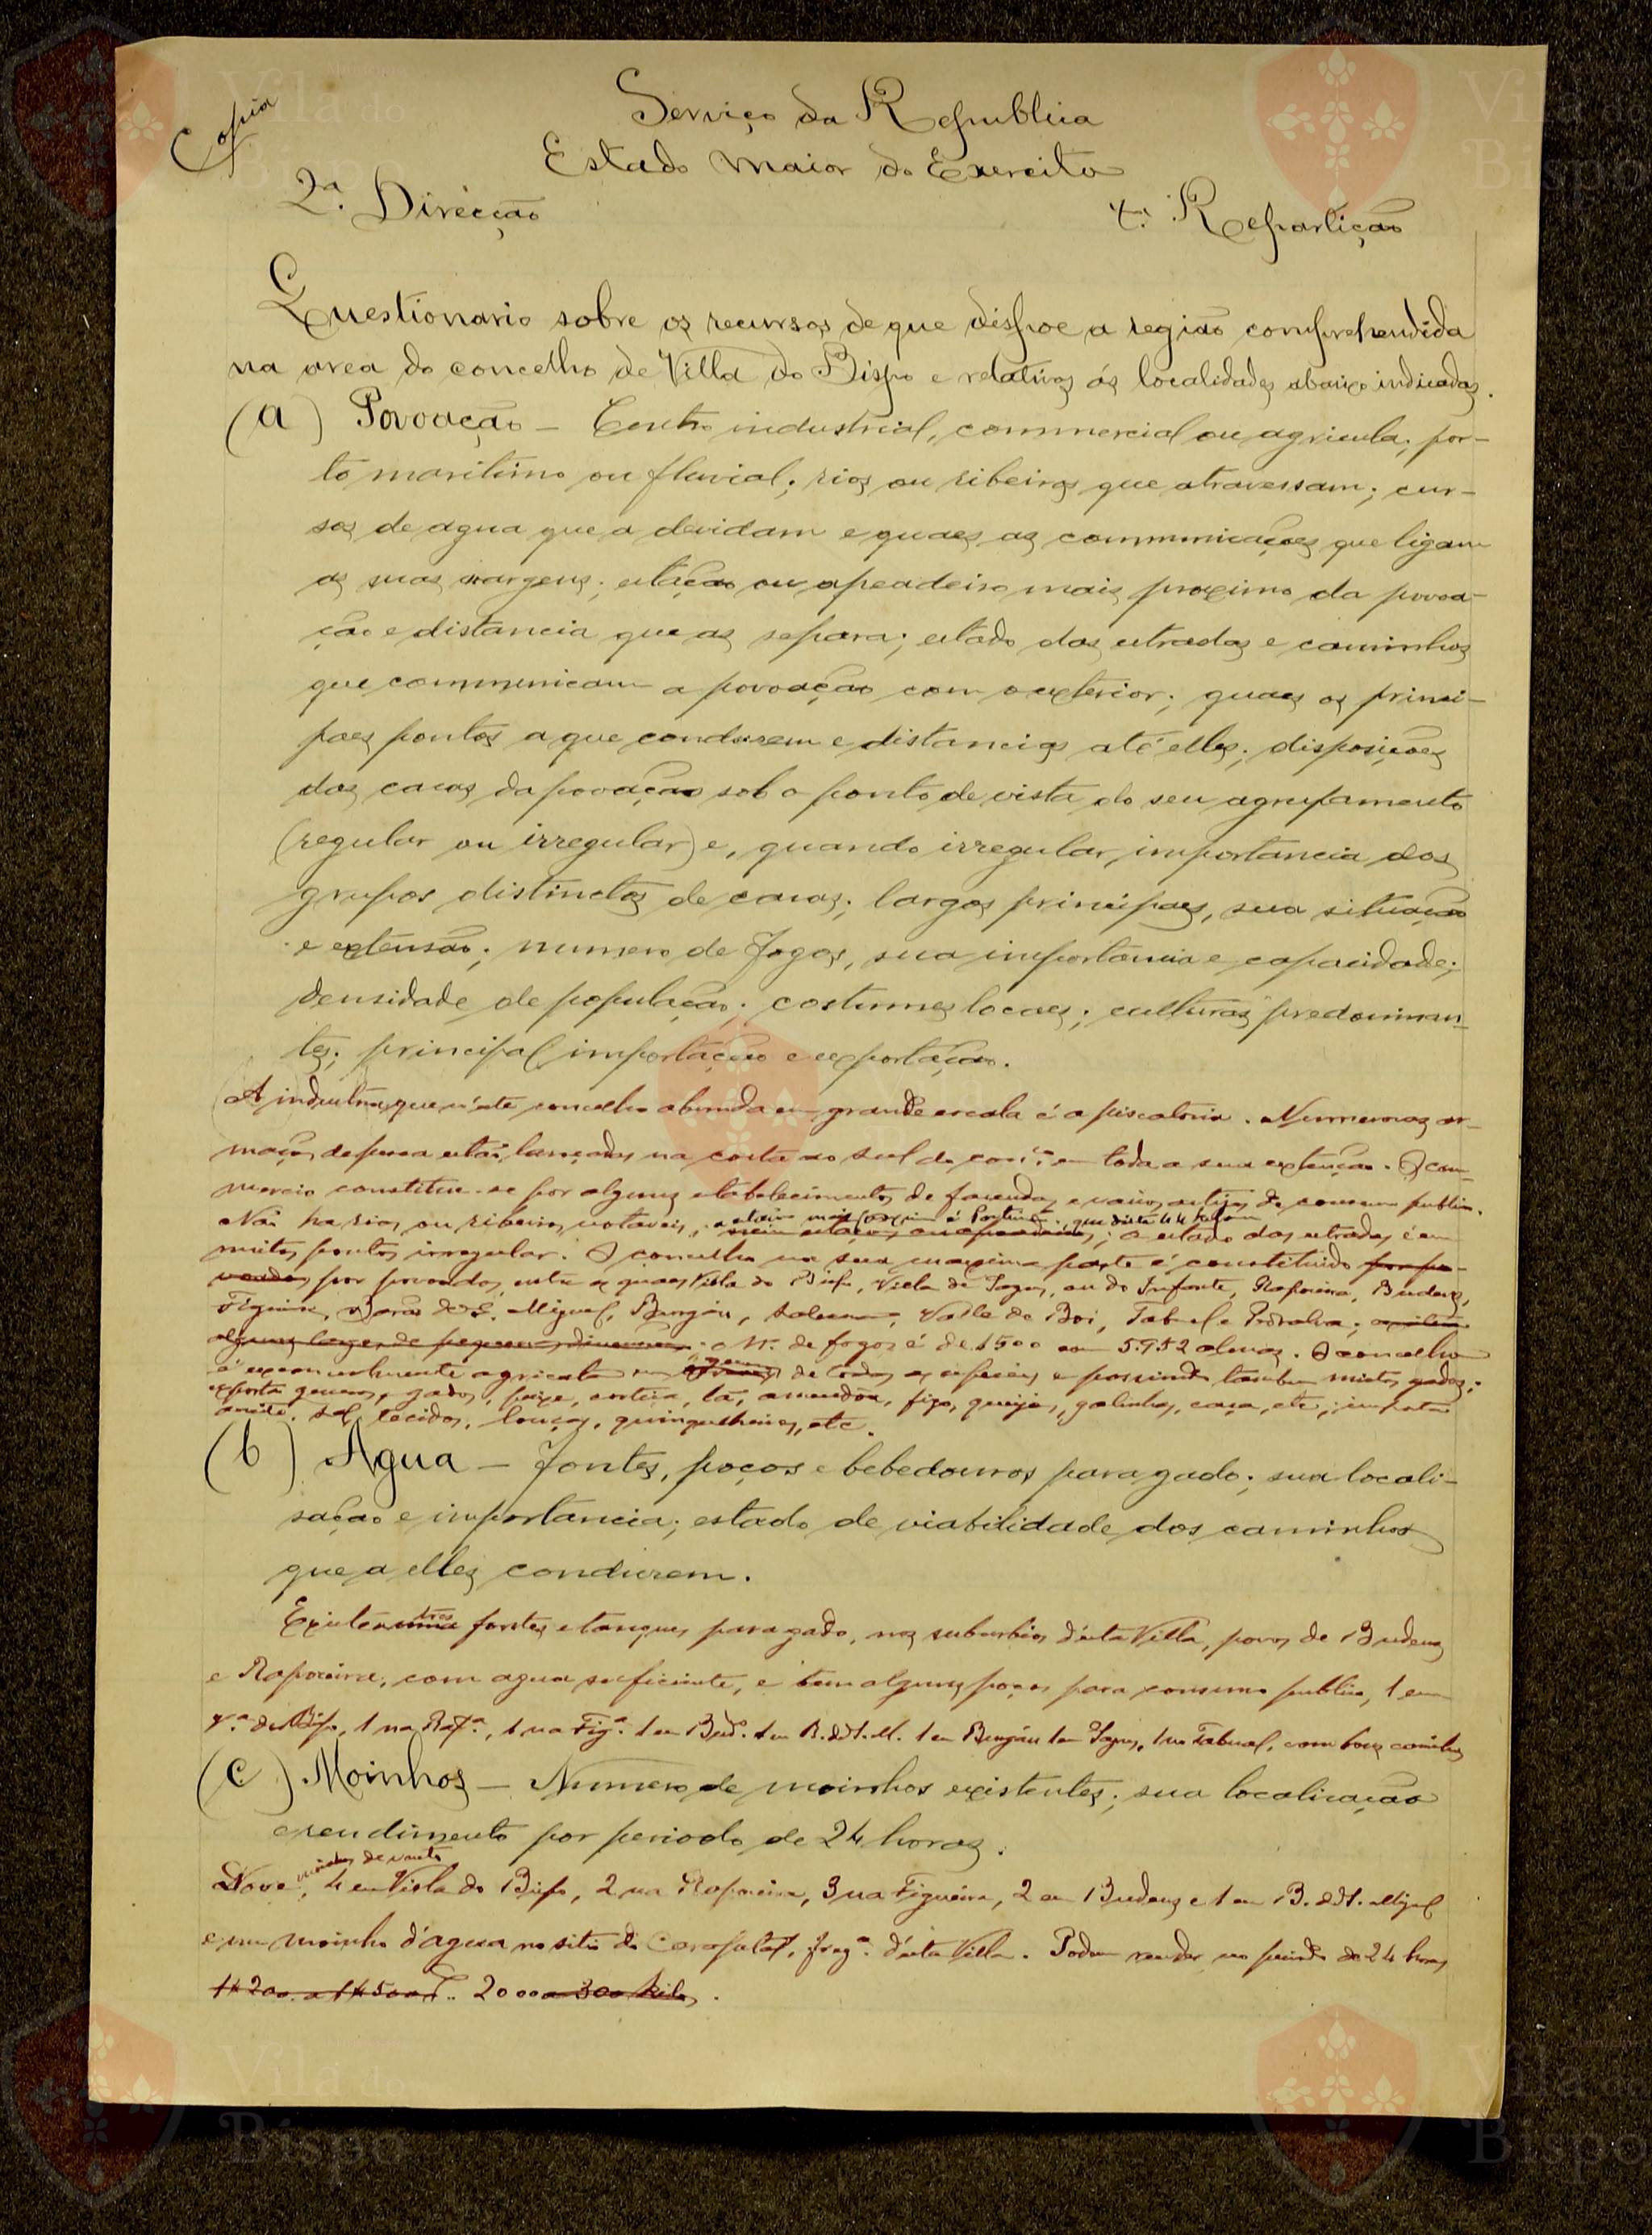 Copia
Serviço da Republica
Estado Maior do Exercito
2ª. Direcção
4ª. Repartição
Questionario sobre os recursos de que dispoe a região comprehendida
na area do concelho de Villa do Bispo e relativos ás localidades abaixo indicadas.
(a) Povoação – Centro industrial, commercial ou agricula; por-
to maritimo ou fluvial; rios ou ribeiros que atravessam; cur-
sos de agua que a devidam e quaes as communicações que ligam
as suas margens; estação ou apeadeiro mais proximo da povoa-
ção e distancia que as separa; estado das estradas e caminhos
que communicam a povoação com o exterior; quaes os princi-
paes pontos a que conduzem e distancias até elles; disposições
das casas da povoação sob o ponto de vista do seu agrupamento
(regular ou irregular) e, quando irregular, importancia dos
grupos distinctos de casas; largos principaes, sua situação
e extensão; numero de fogos, sua importancia e capacidade;
densidade de população; costumes locaes; culturas predominan-
tes; principal importação e exportação.
A industria que n'este concelho abunda em grande escala é a piscatoria. Numerosas ar-
mações de pesca estão lançadas na costa ao sul do con.º em toda a sua extenção. O com-
mercio constitue-se por alguns estabelecimentos de fazendas e varios artigos de consumo publico.
a estação mais proxima é Portimão que dista 44
Não ha rios ou ribeiros notaveis, nem estações ou apeadeiros; o estado das estradas é em
muitos pontos irregular. O concelho na sua maxima parte é constituido
por povoados, entre os quaes Villa do Bispo, Villa de Sagres, ou do Infante, Raposeira, Budens,
Figueira, Barão de S. Miguel, Burgau, Salema, Valle de Boi, Tabual e Pedralva;
alguns largos de pequenas dimensões. N.º de fogos é de 1500 com 5.952 almas. O concelho
é agricula de todas as especies e possuindo tambem muitos gados;
exporta generos, gados, peixe, cortiça, lã, amendoa, figo, queijos, galinhas, caça, etc; importa
azeite, sal, tecidos, louças, quinquelherias, etc.
(b) Agua – Fontes, poços e bebedouros para gado; sua locali-
sação e importancia; estado de viabilidade dos caminhos
que a elles conduzem.
tres
Existem fontes e tanques para gado, nos suburbios d'esta Villa, povos de Budens
e Raposeira, com agua suficiente, e tem alguns poços para consumo publico, 1 em
Vª. do Bispo, 1 na Rapª., 1 na Figª. 1 em Bud. 1 em B. de S. M. 1 em Burgau 1 em Sagres, 1 no Tabual, com bons caminhos
(c) Moinhos – Numero de moinhos existentes; sua localisação
e rendimento por periodo de 24 horas.
moinhos de vento
Nove, 4 em Villa do Bispo, 2 na Raposeira, 3 na Figueira, 2 em Budens e 1 em B. de S. Miguel
e um moinho d'agua no sitio do fregª. d'esta Villa. Podem render no periodo de 24 horas
2000 a 300 kilos.
Vila do Bispo